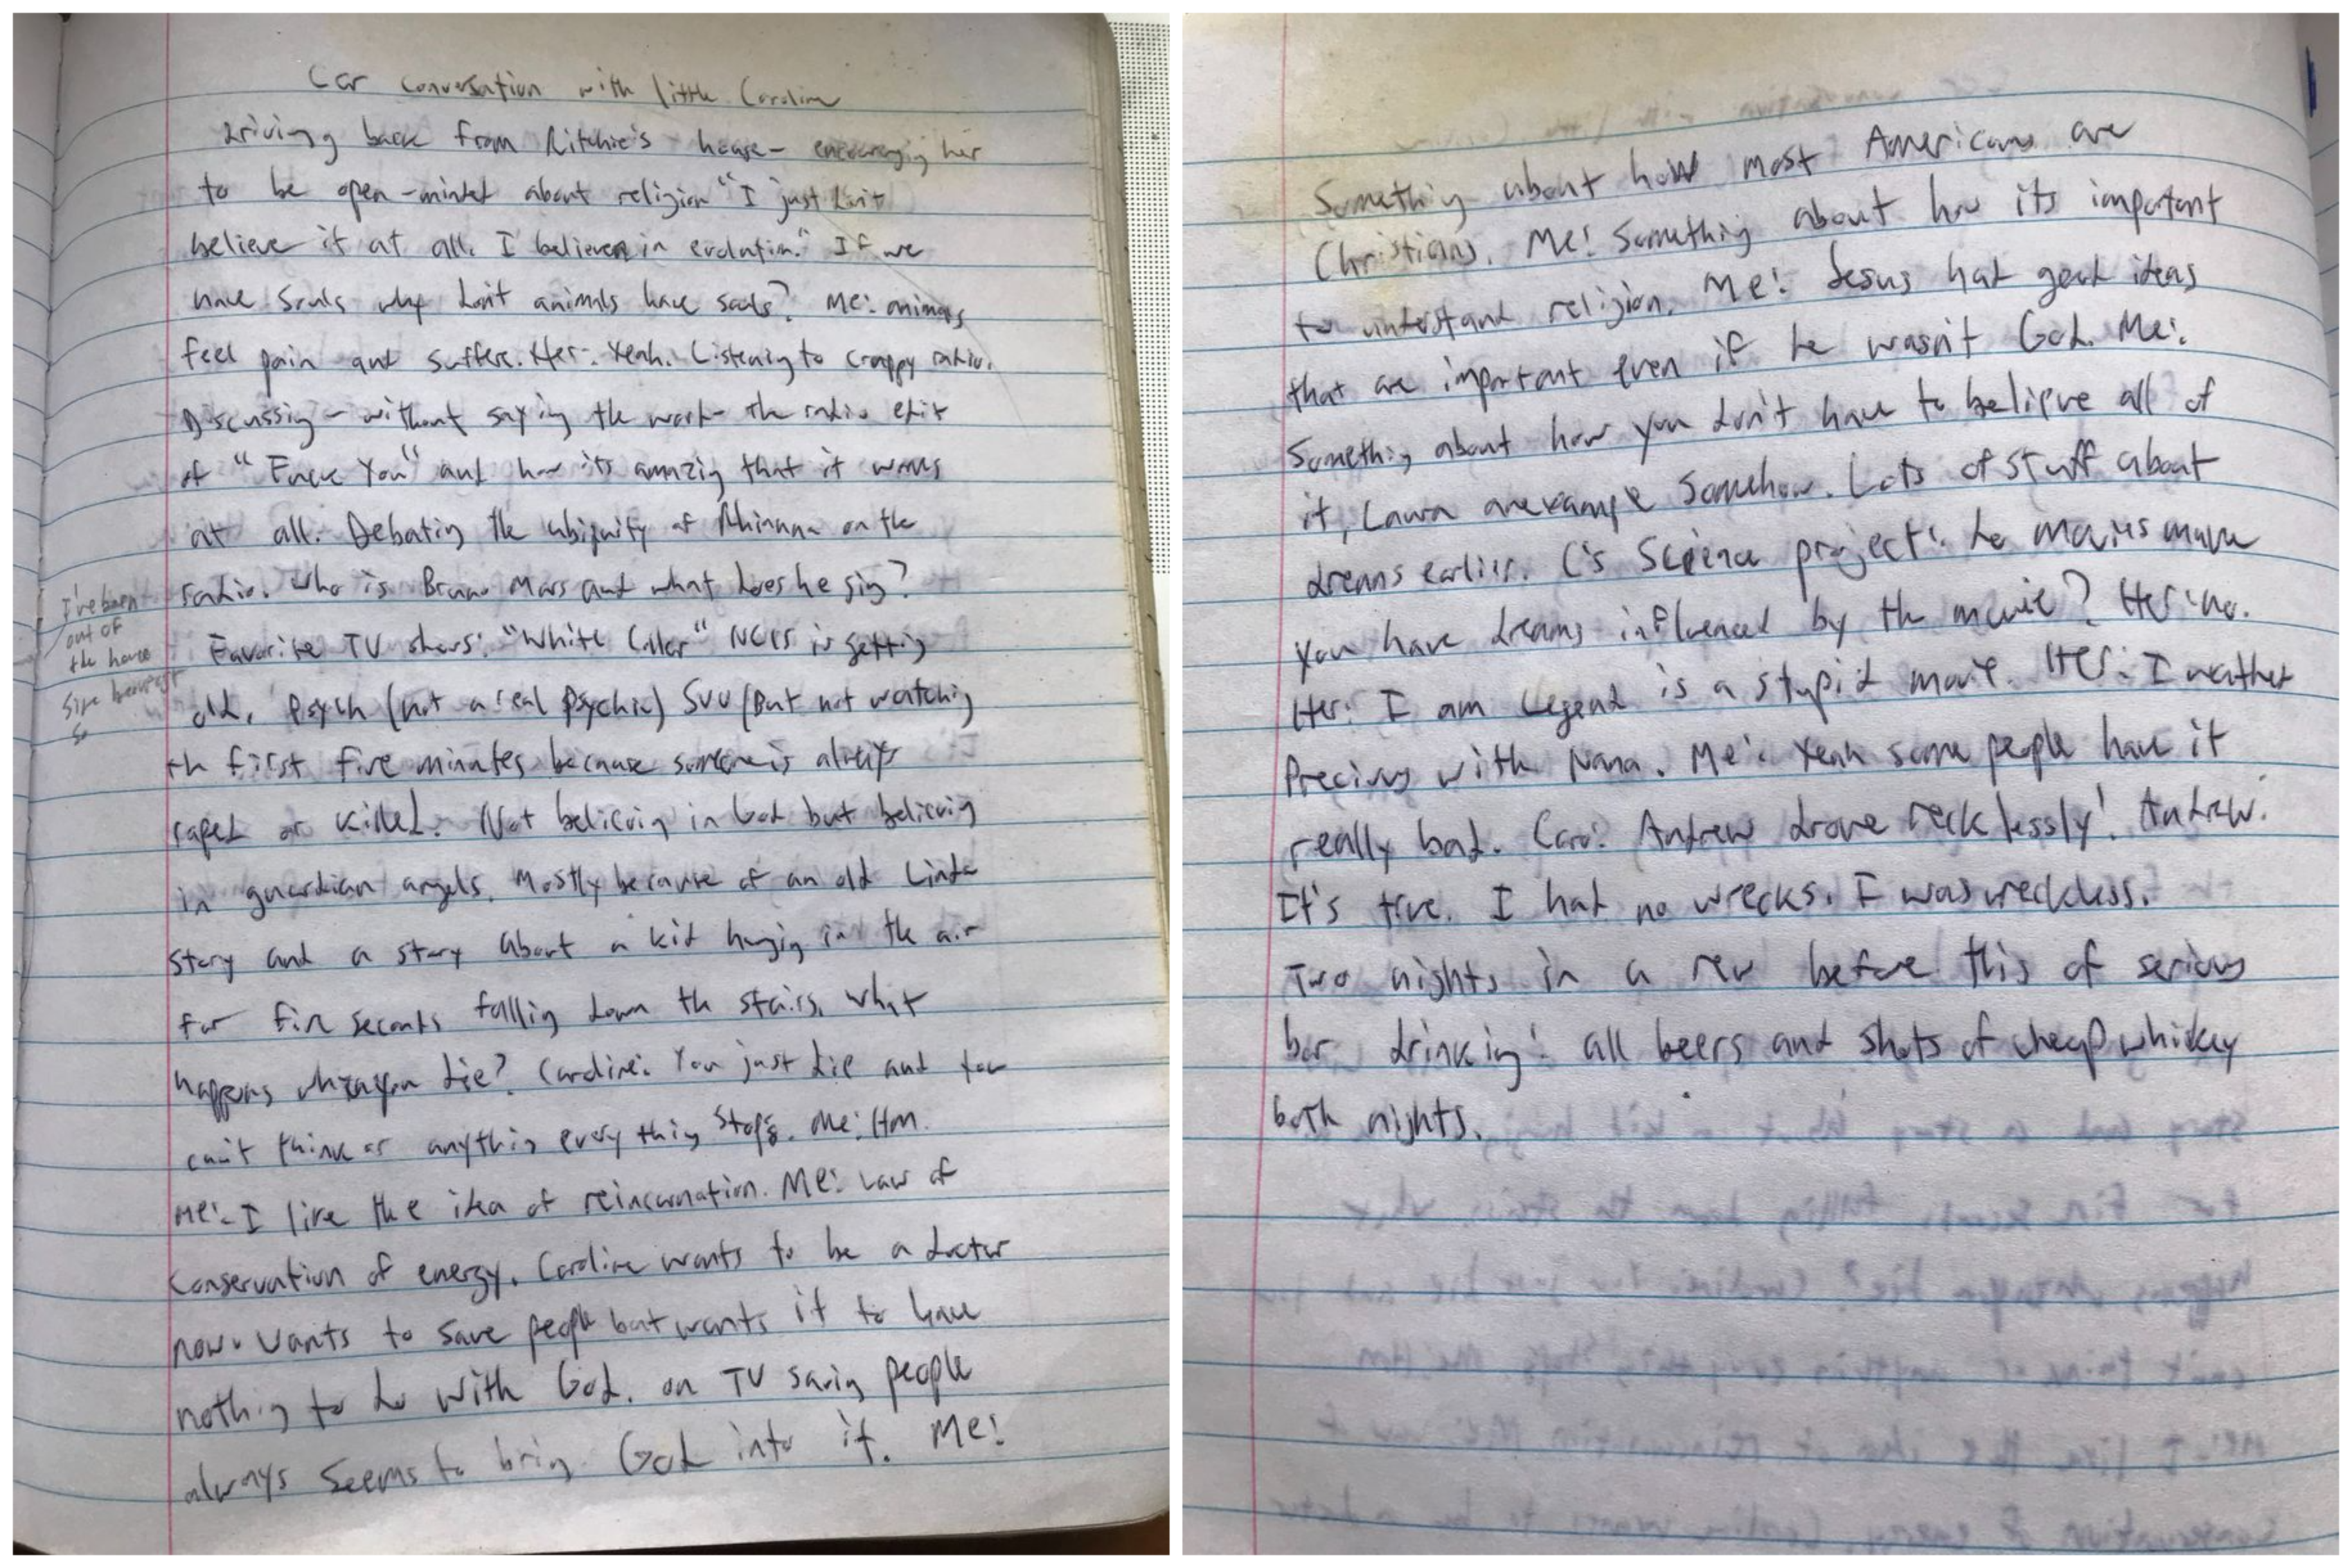 Car conversation with little Caroline
Driving back from Ritchie's house - encouraging her
to be open-minded about religion "I just don't
believe it at all. I believe in evolution." If we
have souls why don't animals have souls? Me: animals
feel pain and suffer. Her: Yeah. Listening to crappy radio.
Discussing - without saying the word - the radio edit
of "Fuck You" and how its amazing that it works
at all. Debating the ubiquity of Rhianna on the
radio. Who is Bruno Mars and what does he sing?
I've been
out of
the house
since breakfast
so
Favorite TV shows: "White Collar" NCIS is getting
old, Psych (not a real psychic) SVU (But not watching
th first five minutes because someone is always
raped or killed. Not believing in God but believing
in guardian angels. Mostly because of an old Linda
story and a story about a kid hanging in the air
for five seconds falling down th stairs. What
happens when you die? Caroline: You just die and you
can't think or anything everything stops. Me: Hm.
Me: I like the idea of reincarnation. Me: Law of
Conservation of energy. Caroline wants to be a doctor
now. Wants to save people but wants it to have
nothing to do with God. on TV saving people
always seems to bring God into it. Me:
Something about how most Americans are
Christians. Me: Something about how its important
to understand religion. Me: Jesus had good ideas
that are important even if he wasn't God. Me:
Something about how you don't have to believe all of
it, an example somehow. Lots of stuff about
dreams earlier. C's Science project: do movies make
you have dreams influenced by the movie? Her: no.
Her: I am Legend is a stupid movie. Her: I watched
Precious with Nana. Me: Yeah some people have it
really bad. Caro: Andrew drove recklessly! Andrew:
It's true. I had no wrecks. I was reckless.
Two nights in a row before this of serious
bar drinking: all beers and shots of cheap whiskey
both nights.